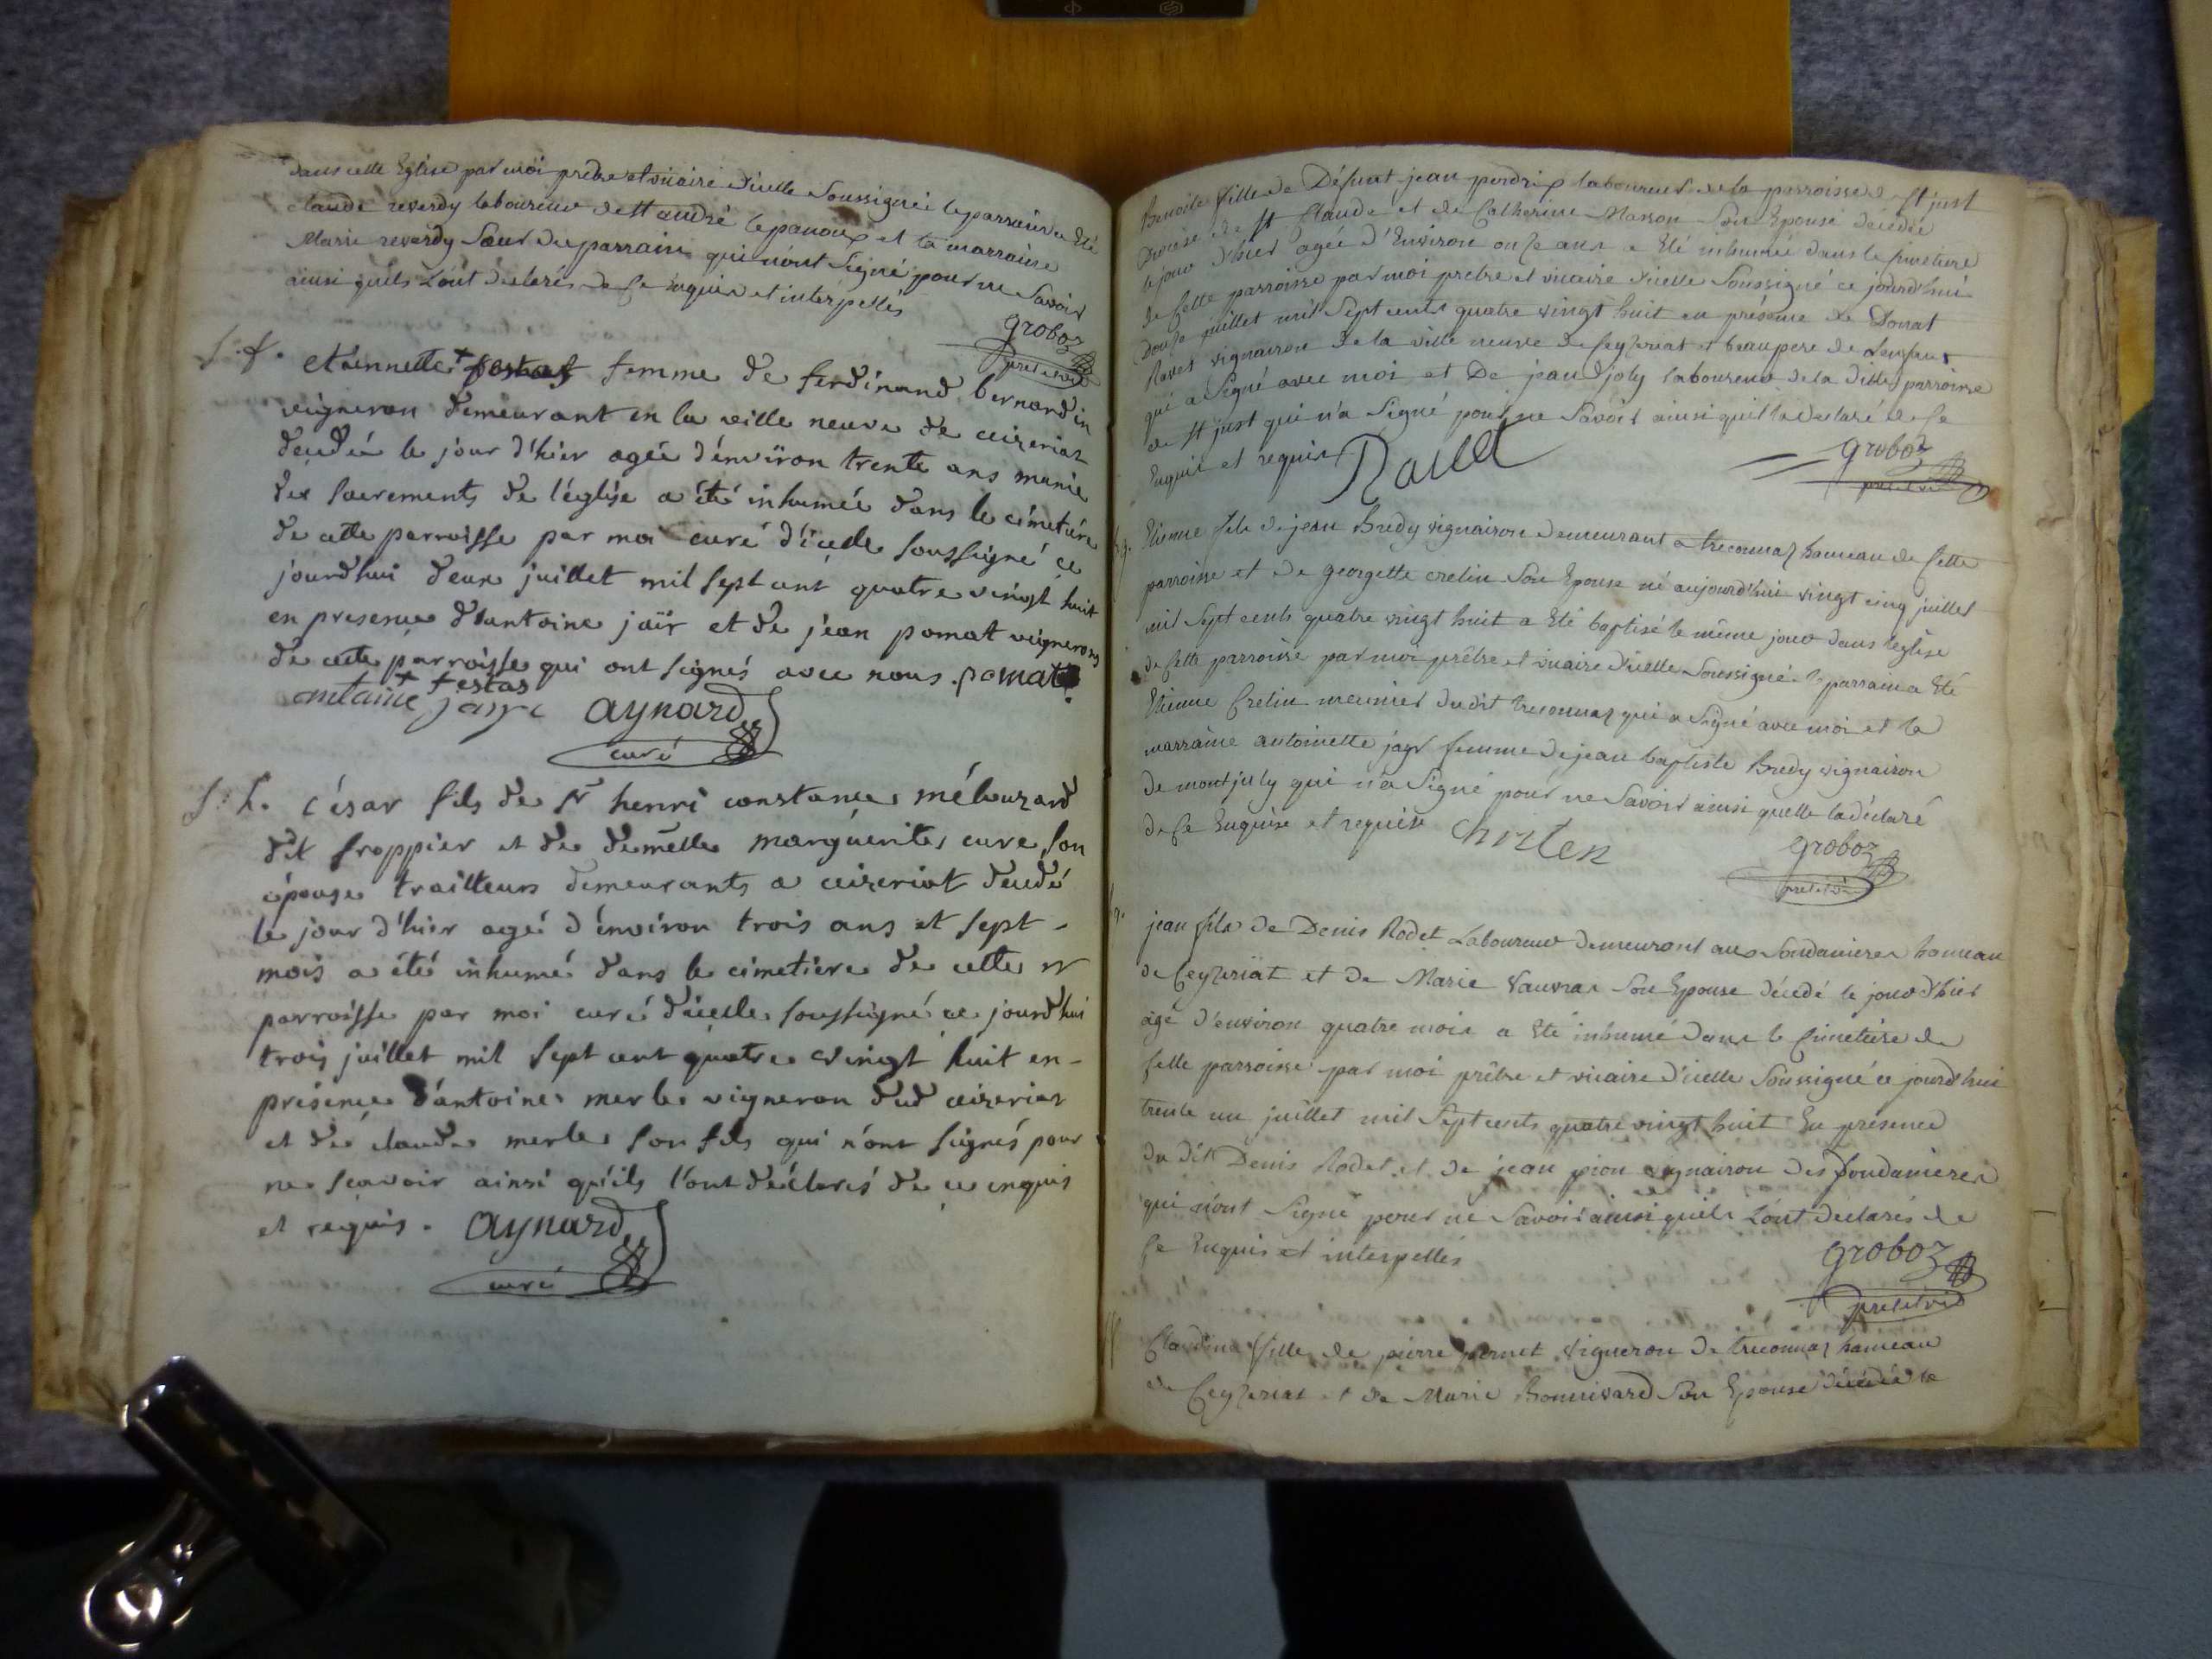 dans cette Eglise par moi prêtre et vicaire d'icelle Soussigné le parrain a Eté
claude reverdy laboureur de st andré le panoux et la marraine
Marie reverdy Sœur du parrain qui n'ont Signé pour ne Savoir
ainsi quils L'ont declarés de Ce Enquis et interpellés
groboz
pretre vic
etiennette + femme de ferdinand bernardin
vigneron demeurant en la ville neuve de ceizeriat
decedée le jour d'hier agée d'environ trente ans munie
des sacrements de l'église a été inhumée dans le cimetiére
de cette parroisse par moi curé d'icelle soussigné ce
jourdhui deux juillet mil sept cent quatre vingt huit
en presence d'antoine jaïr et de jean pomat vignerons
de cette parroisse qui ont signés avec nous. pomat
+ festas
antoine jayr aynard
curé
césar fils de sr henri constance mélouzard
dit froppier et de demelle marguerite cure son
épouse trailteurs demeurants a ceizeriat decedé
le jour d'hier agé d'environ trois ans et sept -
mois a été inhumé dans le cimetiere de cette
parroisse par moi curé d'icelle soussigné ce jourdhui
trois juillet mil sept cent quatre vingt huit en -
présence d'antoine merle vigneron dud ceizeriat
et de claude merle son fils qui n'ont signés pour
ne scavoir ainsi qu'ils l'ont déclarés de ce enquis
et requis. aynard
curé
Benoite fille de Défunt jean perdrix laboureur de la parroisse de St just
Diocèse de st Claude et de Catherine Masson Son Epouse décédée
le jour d'hier agée d'Environ onze ans a Eté inhumée dans le Cimetiere
de Cette parroisse par moi prêtre et vicaire d'icelle Soussigné ce jourd'hui
Douze juillet mil Sept cents quatre vingt huit en présence de Donat
Ravet vignairon de la ville neuve de Ceyzeriat et beaupere de Lenfant
qui a Signé avec moi et De jean joly laboureur de la ditte parroisse
de st just qui n'a Signé pour ne Savoir ainsi quil la declaré de Ce
Enquis et requis Ravet
groboz
pretre vic
Etienne fils de jean Bredy vignairon demeurant a treconnaz hameau de Cette
parroisse et de georgette cretin Son Epouse né aujourd'hui vingt cinq juillet
mil Sept cents quatre vingt huit a Eté baptisé le même jour dans l'église
de Cette parroisse par moi prêtre et vicaire d'icelle Soussigné le parrain a Eté
Etienne Cretin meunier dudit treconnaz qui a Signé avec moi et la
marraine antoinette jayr femme de jean baptiste Bredy vignairon
de montjuly qui n'a Signé pour ne Savoir ainsi quelle la déclaré
de Ce Enquise et requise
groboz
pretre vic
jean fils de Denis Rodet Laboureur demeurant aux Soudanieres hameau
de Ceyzeriat et de Marie Vauvra Son Epouse décédé le jour d'hier
âgé d'environ quatre mois a Eté inhumé dans le Cimetiere de
Cette parroisse par moi prêtre et vicaire d'icelle Soussigné ce jourd'hui
trente un juillet mil Sept cents quatre vingt huit En présence
du dit Denis Rodet et de jean pion vignairon des
qui n'ont Signé pour ne Savoir ainsi quils L'ont declarés de
Ce Enquis et interpellés
groboz
pretre vic
Claudine fille de pierre pernet Vigneron de treconnaz hameau
de Ceyzeriat et de Marie Bonnivard Son Epouse décédée le